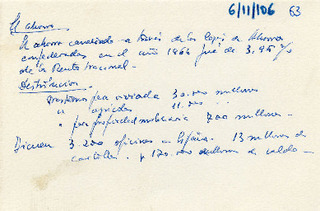 6/11/106 63
El ahorro
El ahorro canalizado a través de las Cajas de Ahorro
confederadas en el año 1964 fué de 3,95 %
de la Renta Nacional.-
Distribución.-
Préstamos para vivienda 30.000 millones
" agrícolas 11.000 "
" para propiedad mobiliaria 700 millones.-
Tienen 3.200 oficinas en España. 13 millones de
cartillas. y 170.000 millones de saldo.-